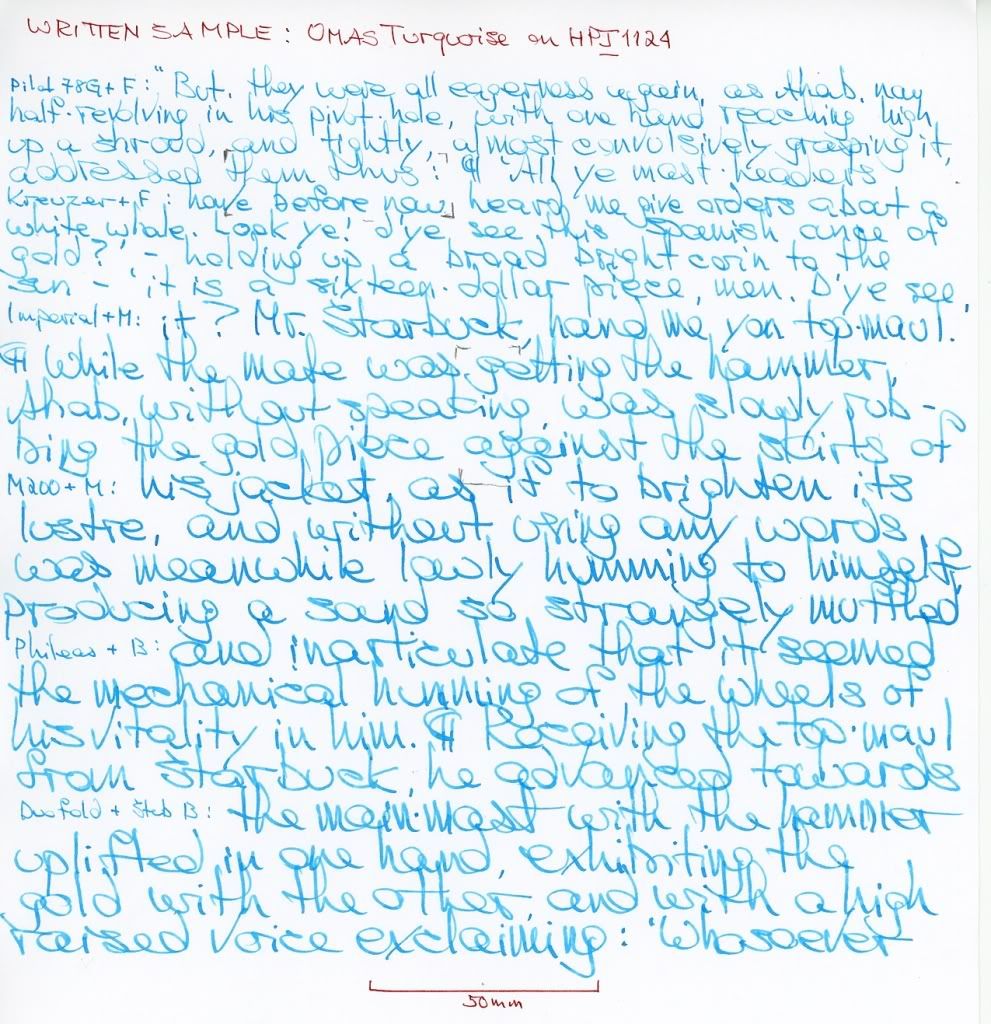 WRITTEN SAMPLE: OMAS Turquoise on HPJ1124
Pilot 78G + F: "But, they were all eagerness again, as Ahab, now
half-revolving in his pivot-hole, with one hand reaching high
up a shroud, and tightly, almost convulsively grasping it,
addressed them thus: ¶ 'All ye mast-headers
Kreuzer + F: have before now heard me give orders about a
white whale. Look ye! d'ye see this Spanish ounce of
gold?', - holding up a broad bright coin to the
sun - 'it is a sixteen-dollar piece, men. D'ye see
Imperial + M: it? Mr. Starbuck, hand me yon top-maul.'
¶ While the mate was getting the hammer,
Ahab, without speaking was slowly rub-
bing the gold piece against the skirts of
M200 + M: his jacket, as if to brighten its
lustre, and without using any words
was meanwhile lowly humming to himself,
producing a sound so strangely muffled
Phileas + B: and inarticulate that it seemed
the mechanical humming of the wheels of
his vitality in him. ¶ Receiving the top-maul
from Starbuck, he advanced towards
Duofold + Stub B: the main-mast with the hammer
uplifted in one hand, exhibiting the
gold with the other, and with a high
raised voice exclaiming: 'Whosoever
50mm